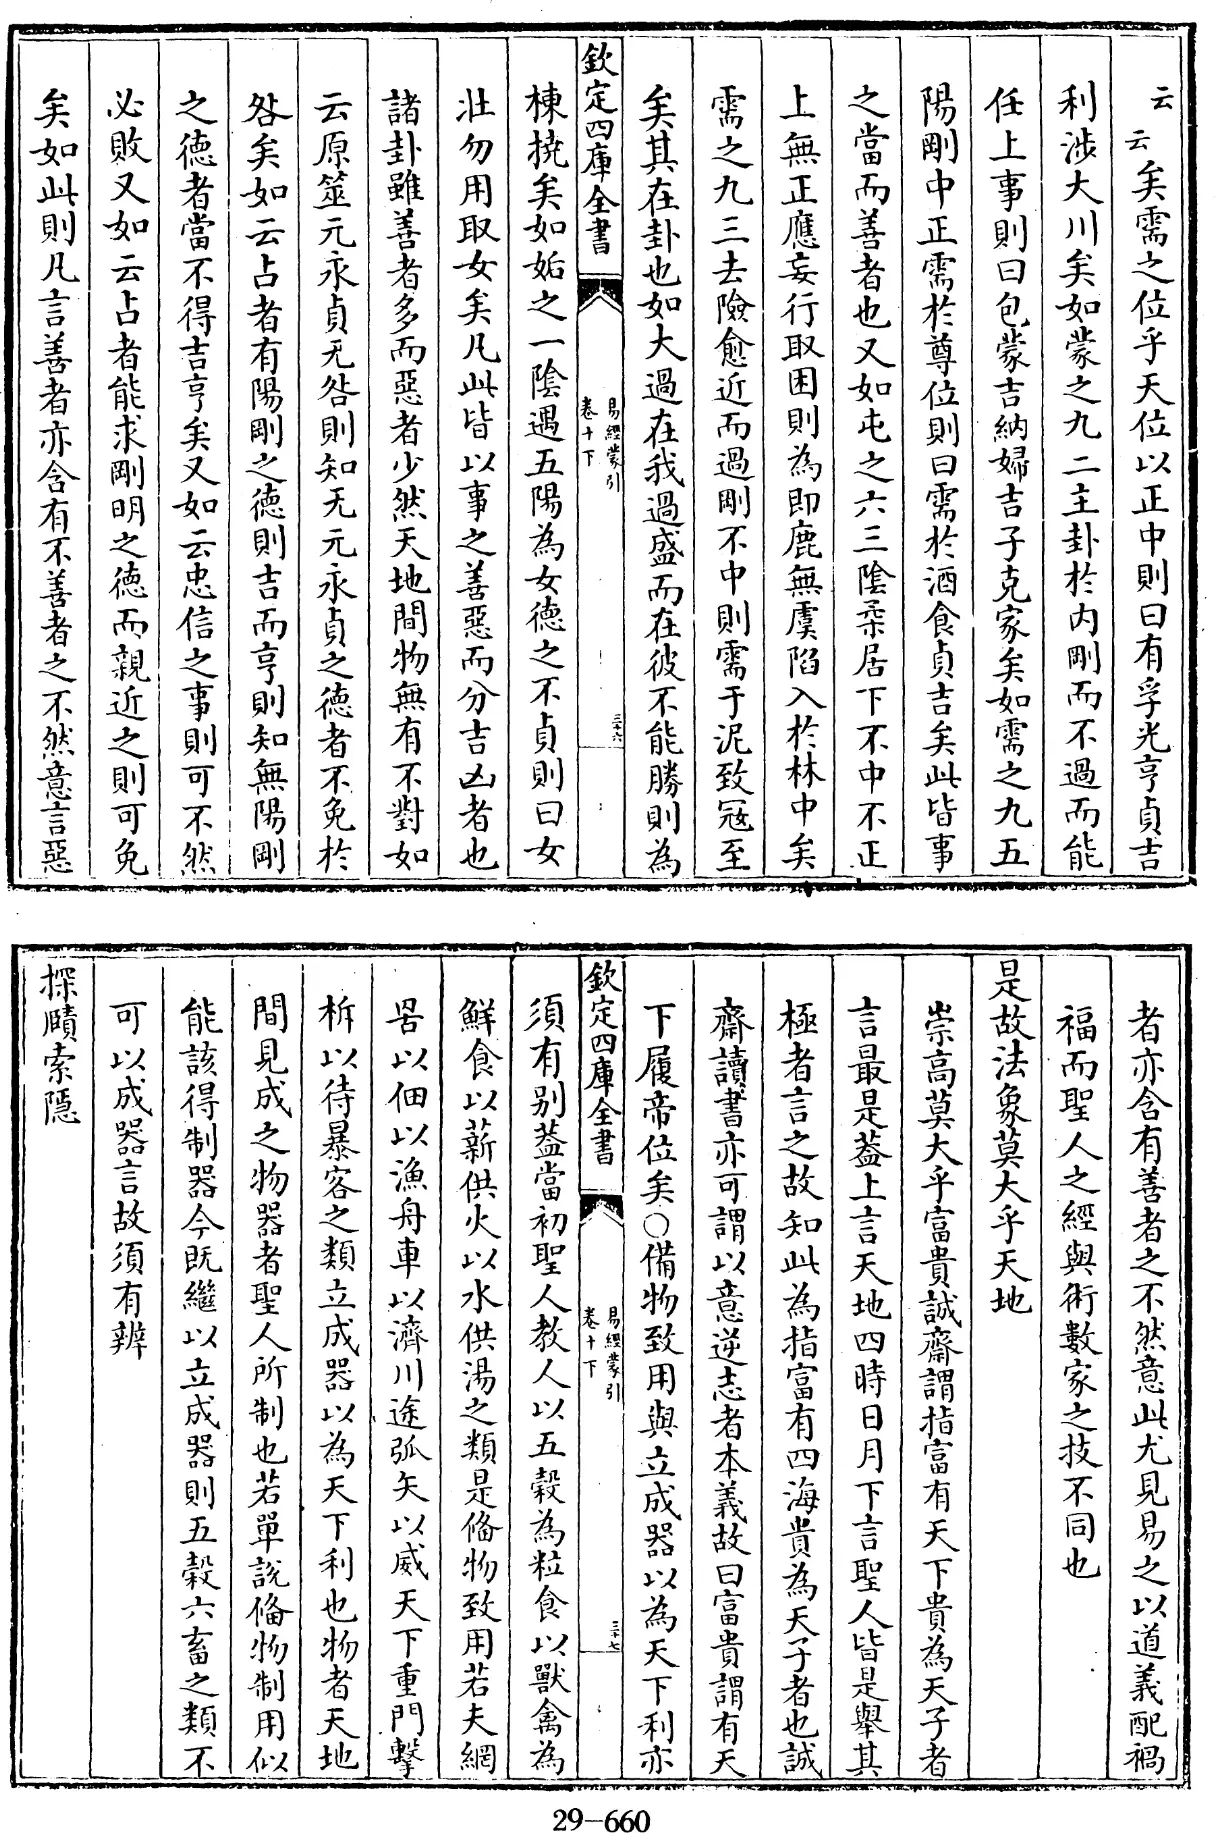 云云矣需之位乎天位以正中則曰有孚光亨貞吉
利涉大川矣如蒙之九二主卦於内剛而不過而能
任上事則曰包蒙吉納婦吉子克家矣如需之九五
陽剛中正需於尊位則曰需於酒食貞吉矣此皆事
之當而善者也又如屯之六三陰柔居下不中不正
上無正應妄行取困則為即鹿無虞陷入於林中矣
需之九三去險愈近而過剛不中則需于泥致冦至
矣其在卦也如大過在我過盛而在彼不能勝則為
欽定四庫全書
易經蒙引
卷十下
三十六
棟撓矣如姤之一陰遇五陽為女德之不貞則曰女
壯勿用取女矣凡此皆以事之善惡而分吉凶者也
諸卦雖善者多而惡者少然天地間物無有不對如
云原筮元永貞无咎則知无元永貞之德者不免於
咎矣如云占者有陽剛之德則吉而亨則知無陽剛
之德者當不得吉亨矣又如云忠信之事則可不然
必敗又如云占者能求剛明之德而親近之則可免
矣如此則凡言善者亦含有不善者之不然意言惡
者亦含有善者之不然意此尤見易之以道義配禍
福而聖人之經與術數家之技不同也
是故法象莫大乎天地
崇高莫大乎富貴誠齋謂指富有天下貴為天子者
言最是蓋上言天地四時日月下言聖人皆是舉其
極者言之故知此為指富有四海貴為天子者也誠
齋讀書亦可謂以意逆志者本義故曰富貴謂有天
下履帝位矣○備物致用與立成器以為天下利亦
欽定四庫全書
易經蒙引
卷十下
三十七
須有别蓋當初聖人教人以五穀為粒食以獸禽為
鮮食以薪供火以水供湯之類是備物致用若夫網
罟以佃以漁舟車以濟川途弧矢以威天下重門擊
柝以待暴客之類立成器以為天下利也物者天地
間見成之物器者聖人所制也若單說備物制用似
能該得制器今既繼以立成器則五穀六畜之類不
可以成器言故須有辨
探賾索隱
29-660